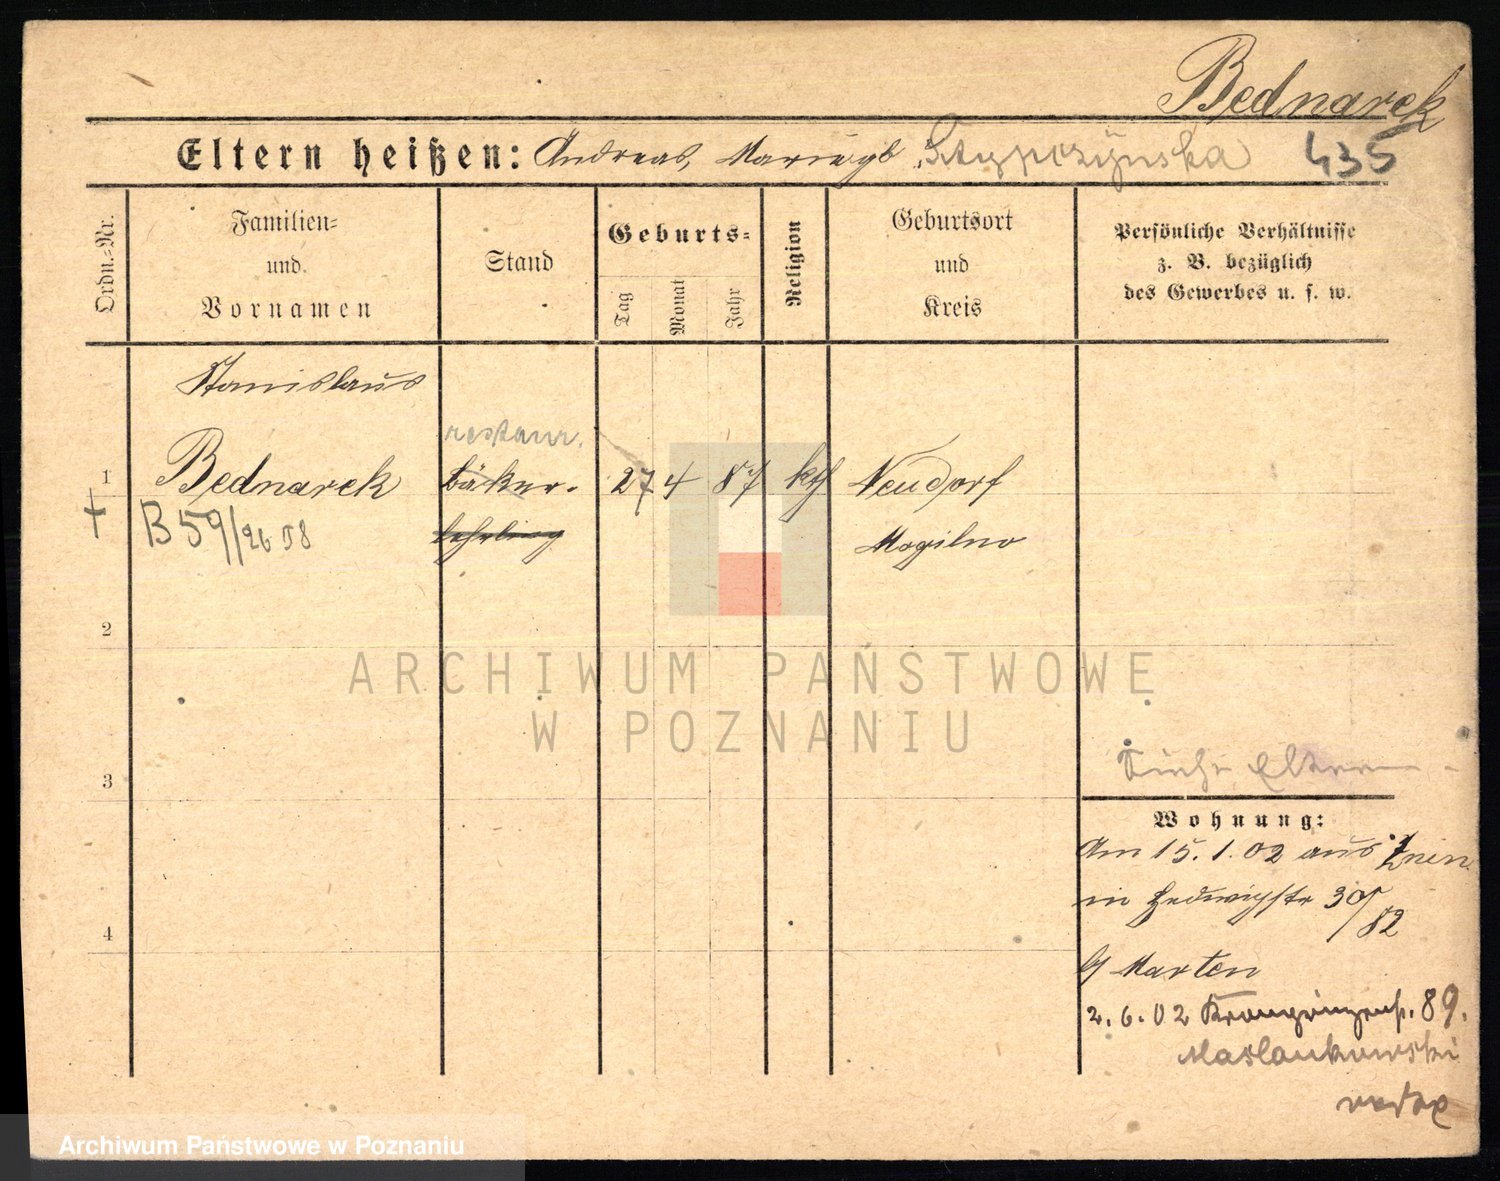 Bednarek
Eltern heißen: Andreas, Maria gb Stypczyńska 435
Ordn.-Nr.
Familien-
und
Vornamen
Stand
Geburts-
Tag
Monat
Jahr
Religion
Geburtsort
und
Kreis
Persönliche Verhältnisse
z. B. bezüglich
des Gewerbes u. s. w.
Stanislaus
restaur.
1 Bednarek Bäker- 27 4 87 kth Neudorf
† B 59/26 58 lehrling Mogilno
2
ARCHIWUM PAŃSTWOWE
W POZNANIU
3
Siehe Eltern
Wohnung:
Am 15.1.02 aus Znin
in Hedwigstr 30/82
4
b/ Marten
2.6.02 Kronprinzenst. 89.
Maslankowski
Archiwum Państwowe w Poznaniu